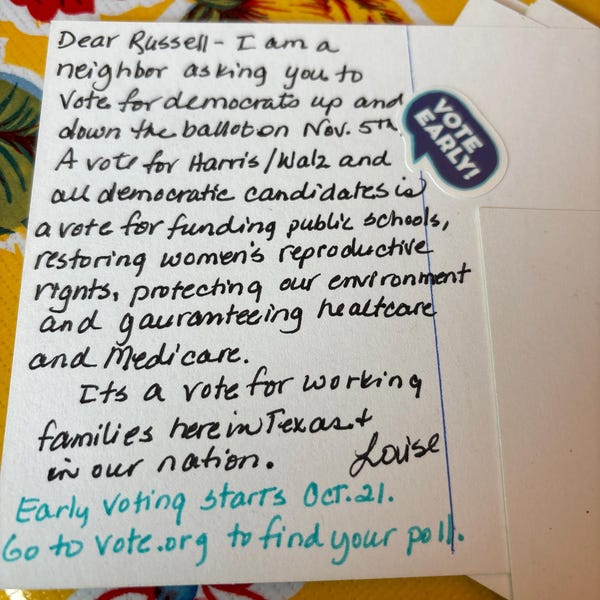 Dear Russell - I am a
neighbor asking you to
Vote for democrats up and
down the ballot on Nov. 5th.
A vote for Harris/Walz and
all democratic candidates is
a vote for funding public schools,
restoring women's reproductive
rights, protecting our environment
and gauranteeing healtcare
and Medicare.
Its a vote for working
families here in Texas &
in our nation.
Louise
Early voting starts Oct. 21.
Go to vote.org to find your poll.
VOTE
EARLY!